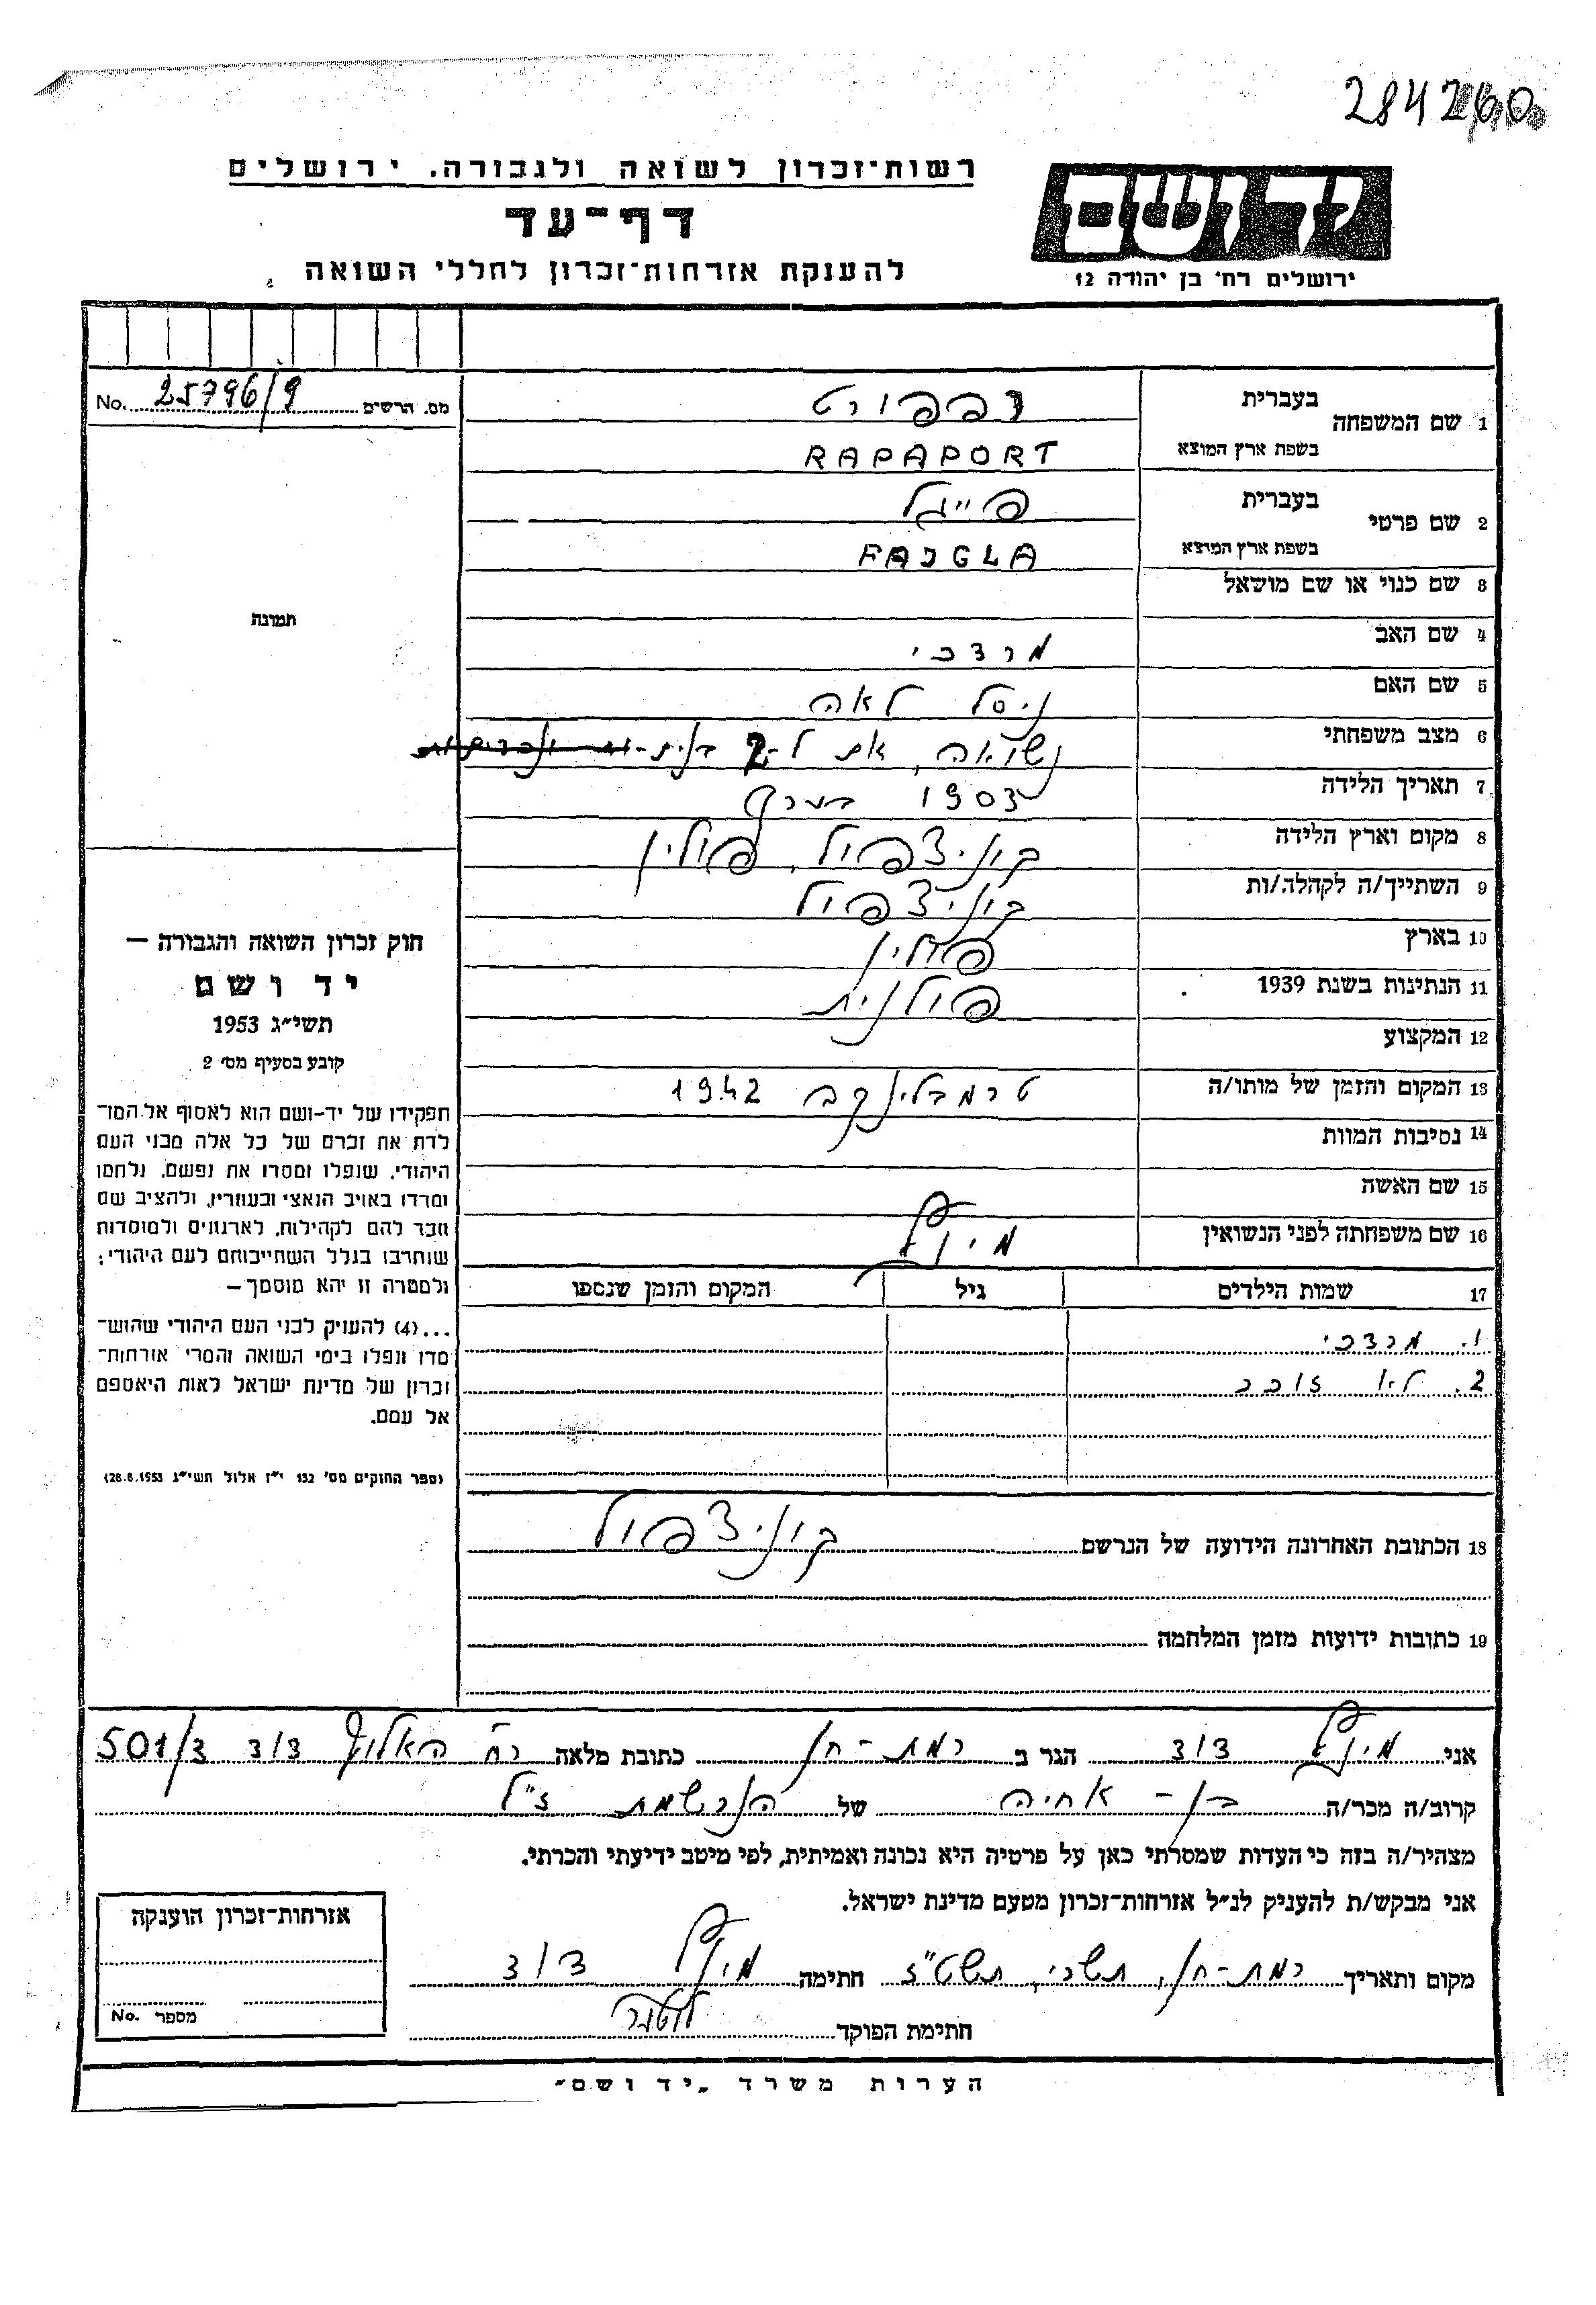 284260
רשות־זכרון לשואה ולגבורה. ירושלים
דף־עד
להענקת אזרחות־זכרון לחללי השואה
יד ושם
ירושלים רח׳ בן יהודה 12
מס. הרשים No. 25796/9
1 שם המשפחה בעברית רפפורט
בשפת ארץ המוצא RAPAPORT
2 שם פרטי בעברית פייגל
בשפת ארץ המוצא FAJGLA
3 שם כנוי או שם מושאל
4 שם האב מרדכי
5 שם האם ניסל לאה
6 מצב משפחתי נשואה, אם ל-2
7 תאריך הלידה 1903 בערך
8 מקום וארץ הלידה קונ׳צפול, פולין
9 השתייך/ה לקהלה/ות קונ׳צפול
10 בארץ פולין
11 הנתינות בשנת 1939 פולנית
12 המקצוע
13 המקום והזמן של מותו/ה טרמבלינקה 1942
14 נסיבות המוות
15 שם האשה
16 שם משפחתה לפני הנשואין
17 שמות הילדים גיל המקום והזמן שנספו
1. מרדכי
2. לא זוכר
18 הכתובת האחרונה הידועה של הנרשם קונ׳צפול
19 כתובות ידועות מזמן המלחמה
תמונה
חוק זכרון השואה והגבורה —
יד ושם
תשי״ג 1953
קובע בסעיף מס׳ 2
תפקידו של יד־ושם הוא לאסוף אל המו־
לדת את זכרם של כל אלה מבני העם
היהודי, שנפלו ומסרו את נפשם, נלחמו
ומרדו באויב הנאצי ובעוזריו, ולהציב שם
וזכר להם לקהילות, לארגונים ולמוסדות
שנחרבו בגלל השתייכותם לעם היהודי;
ולמטרה זו יהא מוסמך —
...(4) להעניק לבני העם היהודי שהוש־
מדו ונפלו בימי השואה והמרי אזרחות־
זכרון של מדינת ישראל לאות היאספם
אל עמם.
(ספר החוקים מס׳ 132 י״ז אלול תשי״ג 28.8.1953)
אני דוד הגר ב רמת-חן כתובת מלאה רח׳ האלוף דוד 501/3
קרוב/ה מכר/ה בן-אחיה של הנרשמת ז״ל
מצהיר/ה בזה כי העדות שמסרתי כאן על פרטיה היא נכונה ואמיתית, לפי מיטב ידיעתי והכרתי.
אני מבקש/ת להעניק לנ״ל אזרחות־זכרון מטעם מדינת ישראל.
מקום ותאריך רמת-חן, תשרי, תשט״ז חתימה דוד
חתימת הפוקד
אזרחות־זכרון הוענקה
מספר No.
הערות משרד „יד ושם״